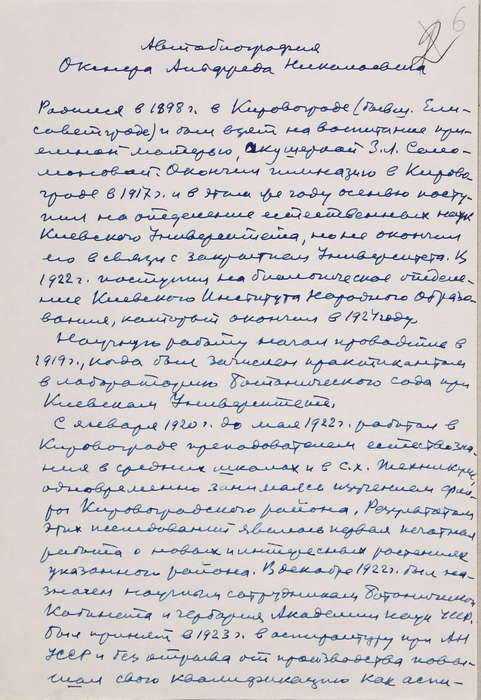 6
2
Автобиография
Окснера Альфреда Николаевича
Родился в 1898 г. в Кировограде (бывш. Ели-
саветграде) и был взят на воспитание при-
емной матерью, акушеркой З. Л. Соло-
моновой. Окончил гимназию в Кирово-
граде в 1917 г. и в этом же году осенью посту-
пил на отделение естественных наук
Киевского Университета, но не окончил
его в связи с закрытием Университета. В
1922 г. поступил на биологическое отделе-
ние Киевского Института Народного Образо-
вания, который окончил в 1924 году.
Научную работу начал проводить в
1919 г., когда был зачислен практикантом
в лабораторию ботанического сада при
Киевском Университете.
С января 1920 г. до мая 1922 г. работал в
Кировограде преподавателем естествозна-
ния в средних школах и в с.х. техникуме,
одновременно занимаясь изучением фло-
ры Кировоградского района. Результатом
этих исследований явилась первая печатная
работа о новых и интересных растениях
указанного района. В декабре 1922 г. был на-
значен научным сотрудником Ботанического
Кабинета и гербария Академии наук УССР.
Был принят в 1923 г. в аспирантуру при АН
УССР и без отрыва от производства повы-
шал свою квалификацию как аспи-